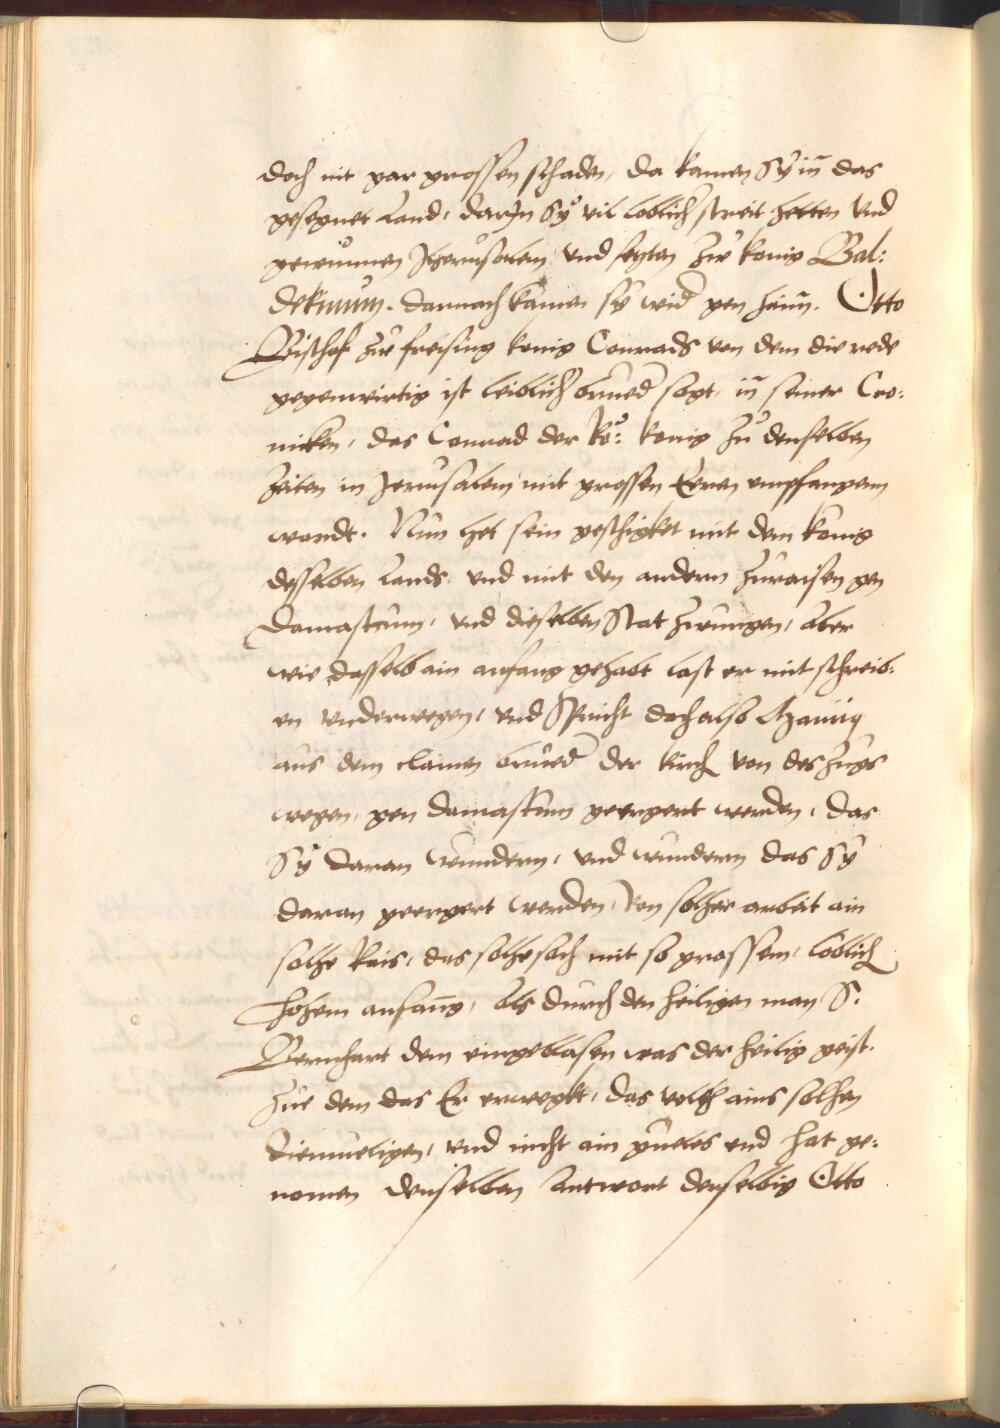 doch nit gar grossen schaden, da kamen Sÿ in̄ das
gesegnet Land, darJn Sÿ vil loblich streit hetten Vnd
gewunnen Jherusalem, Vnd setzten zue konig Bal:
dekinum. darnach kamen sÿ wid gen haim̄. Otto
Bischof zue freising konig Conrads von dem die rede
gegenwirtig ist leiblich brued sagt, in̄ seiner Cro:
nicken, das Conrad der Ro: konig zu denselben
zeiten in Jerusalem mit grossen Eren empfangenn
wardt. Nun het sein geschigket mit dem konig
desselben Lands, und mit den andern zuraisen gen
Damascum, vnd dieselben Stat zwungen, Aber
wie dasselb ain anfang gehabt last er mit schreib:
en vnderwegen, vnd Spricht doch also
aus dem clainen brued der kirch von des zugs
wegen, gen damascum geergert werden, das
Sÿ daran wundern, vnd wundern das Sÿ
daran geergert werden, von solher arbeit ain
solhe Rais, das solhe sach mit so grossem, loblich
hohem anfan̄g, Als durch den heiligen man S.
Bernhart dem eingeblasen was der heilig geist.
Zue dem das Er erwegkt, das volkh ains solhen
diemueligen, vnd nicht ain guetes end hat ge:
nomen denselben Antwort derselbig Otto